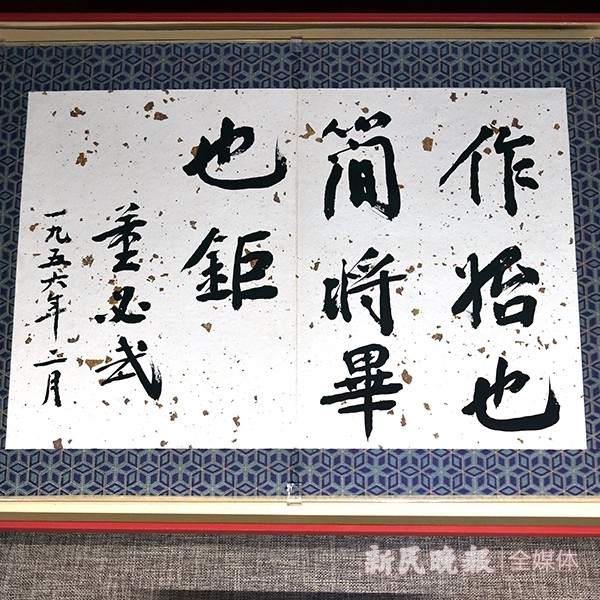 作始也
簡將畢
也鉅
董必武
一九五六年二月
新民晚报|全媒体